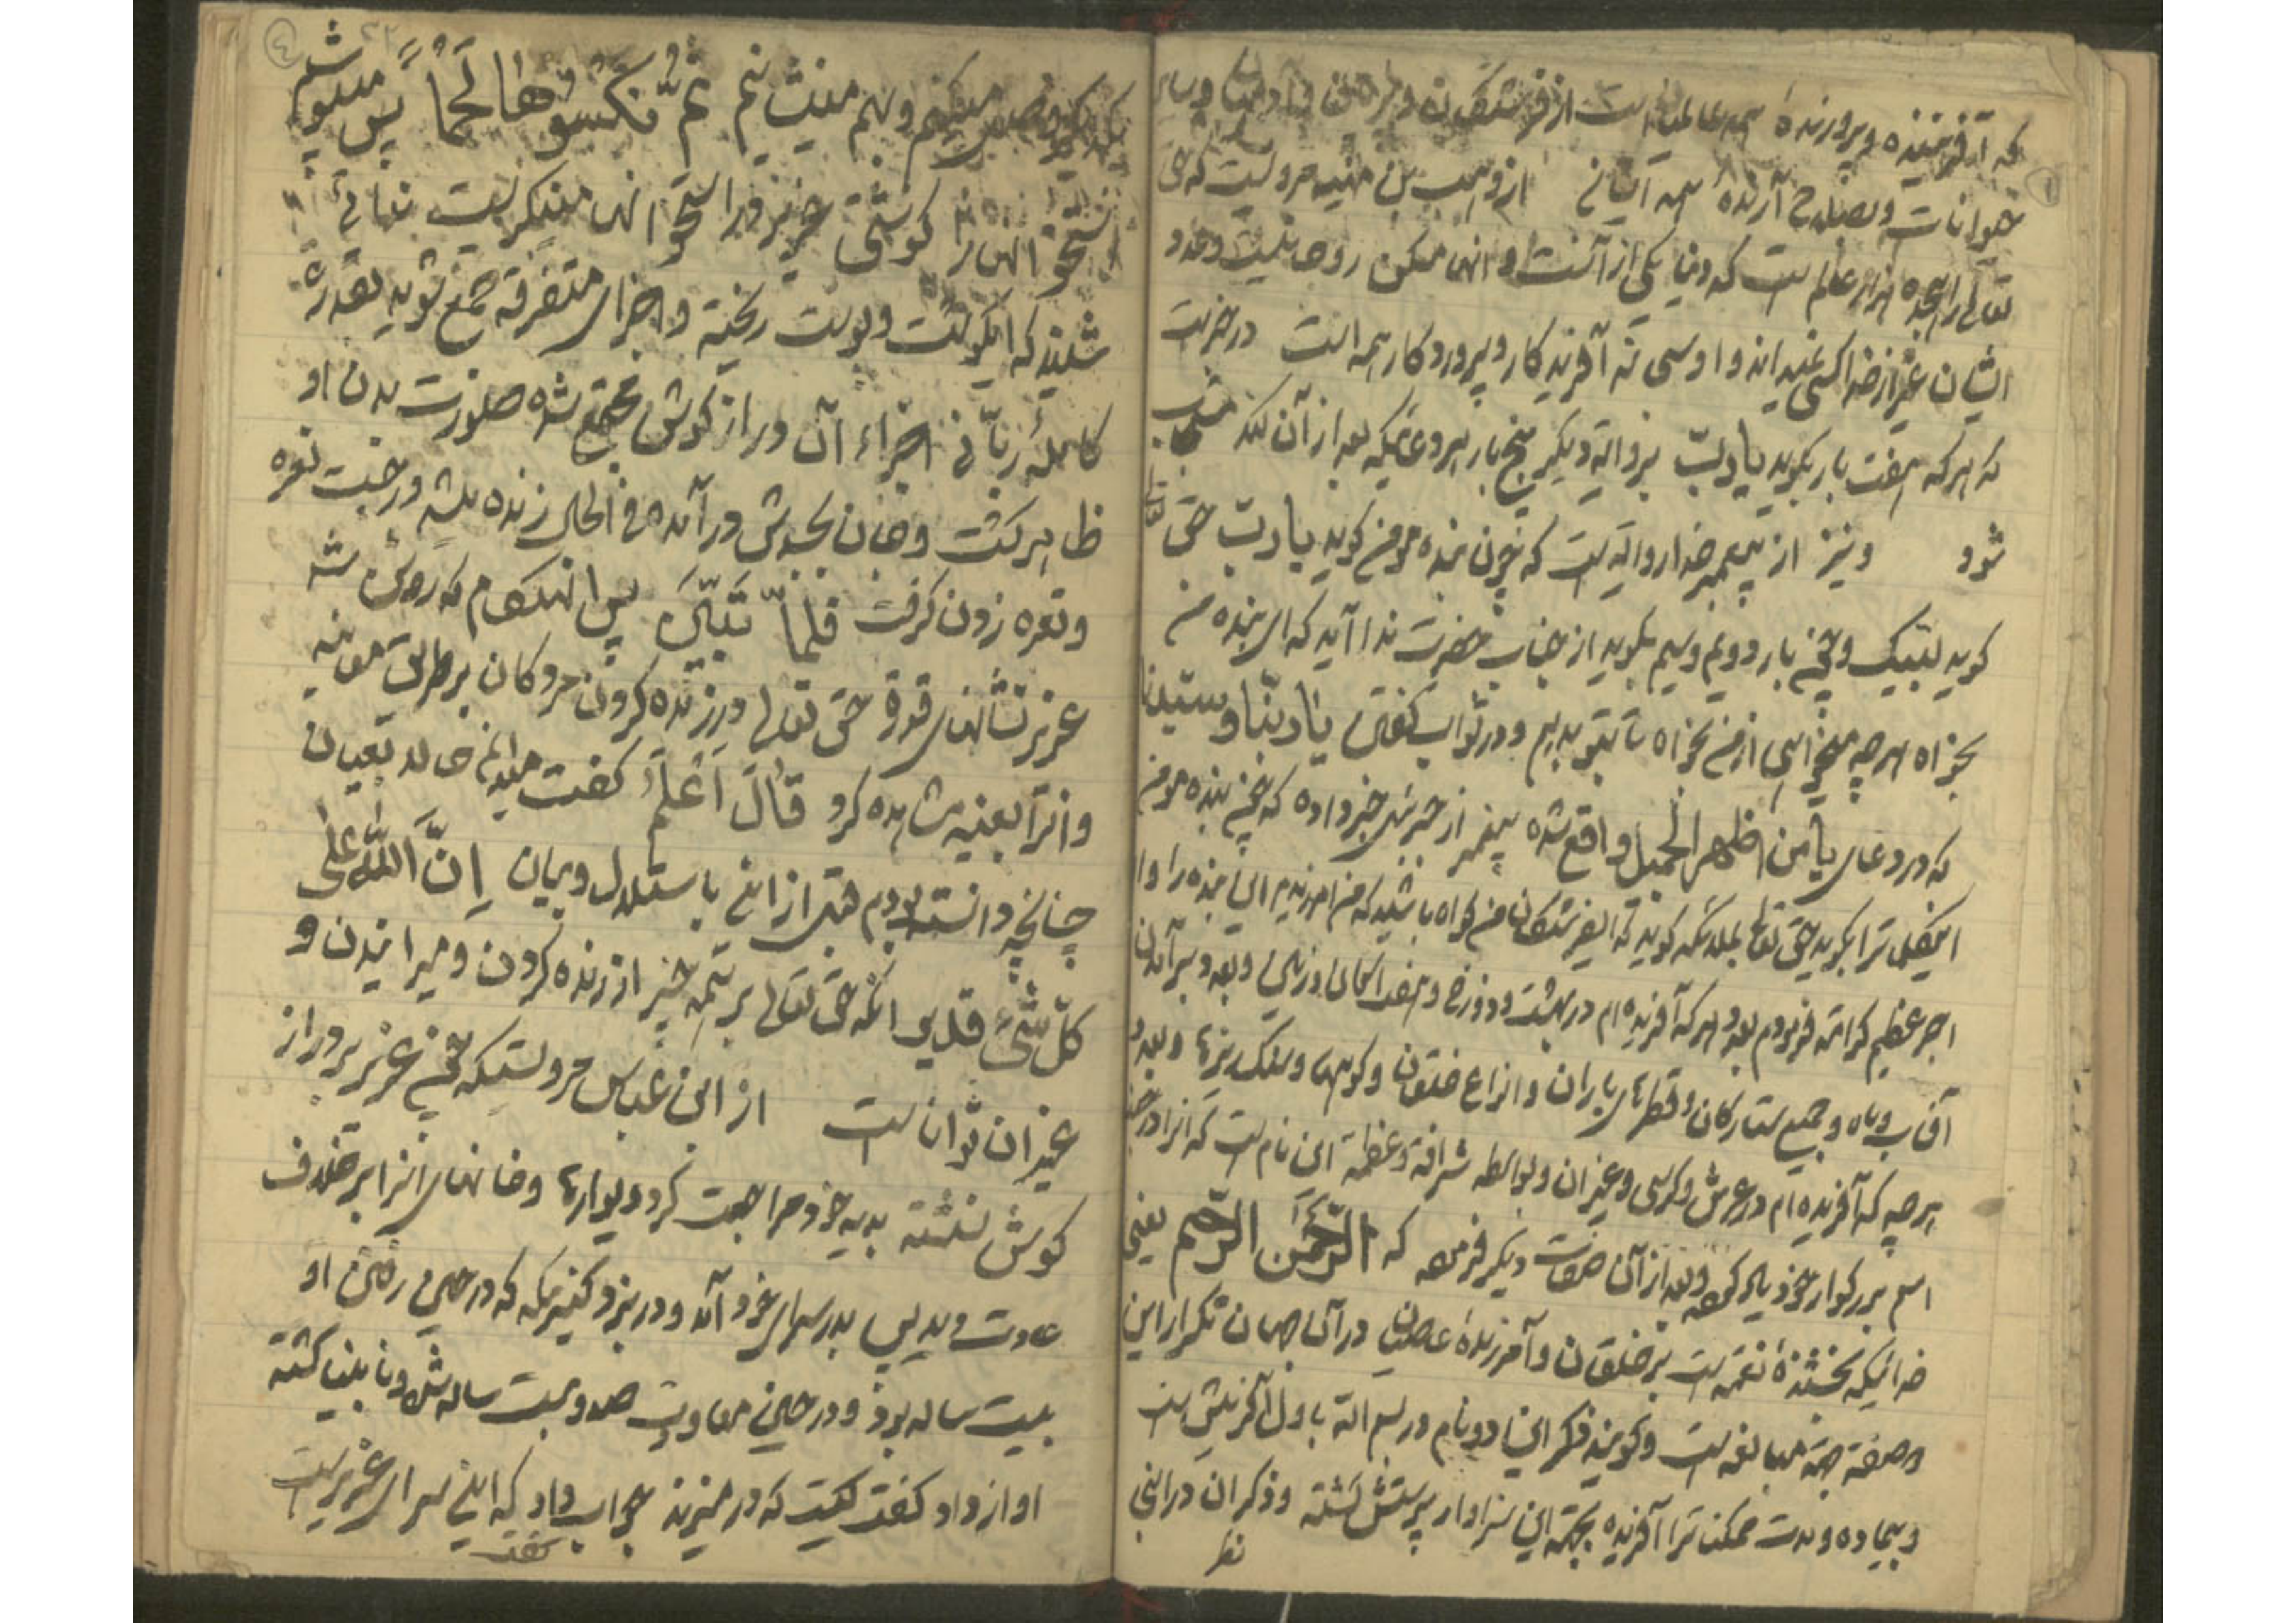 که آفریننده و پرورنده همه عالمیانست از فرشتگان و
حیوانات و بصلاح آرنده همه آسانی از وهب بن منبه مرویست که حق
تعالی را هجده هزار عالم است که دنیا یکی از آنست و
ایشان غیر از خدا کسی نمیداند و اوست که آفریدکار و پرورد کار همه است در خبرست
که هرکه هفت بار بکوید یا رب بروایه دیکر پنج بار هر دعائیکه بعد از آن کند مستجاب
شود و نیز از پیغمبر خدا روایه است که چون بنده مومن کوید یا رب حق تعالی
کوید لبیک و چون بار دویم و سیم بکوید از جناب حضرت ندا آید که ای بنده من
بخواه هر چه میخواهی از من بخواه تا بتو بدهم و در ثواب کفتن یا ربنا و سیدنا
که در دعای یا من اظهر الجمیل واقع شده پیغمبر از جبرئیل خبر داده که چون بنده مومن
این کلمه را بکوید حق تعالی بملائکه کوید که ای فرشتکان من کواه باشید که من آمرزیدم این بنده را و او را
اجر عظیم کرامه فرمودم بعدد هر که آفریده ام در بهشت و دوزخ و هفت آسمان و زمین و بعدد برآمدن
آفتاب و ماه و جمیع ستارکان و قطرهای باران و انواع خلقان و کوهها و سنک ریزها و بعدد
هر چه که آفریده ام در عرش و کرسی و غیر ان و بواسطه شرافة و عظمة این نام است که انرا در
اسم بزرکوار خود یاد کرده و بعد از آن صفات دیکر فرموده که الرّحمن الرّحیم یعنی
خدائیکه بخشنده نعمة است بر خلقان و آمرزنده عاصیان در آن جهان تکرار این
دو صفة جهة مبالغه است و کویند ذکر این دو نام در بسم الله باول آفرینش است
و بیماده و مدت ممکنات را آفریده بجهة این سزاوار پرستش کشته و ذکر ان در اینجا
نظر
ترکیب میکنیم و بهم مینشانیم ثُمَّ نَکْسُوهَا لَحْماً پس میپوشیم
استخوانهارا کوشتی عزیز فرا استخوانها مینکریست ندائی
شنید که ای کوشت و پوست ریخته و اجزای متفرقه جمع شوید بقدرة
کامله ربانی اجزاء آن دراز کوش مجتمع شده صورت بدن او
ظاهر کشت و جان بجسدش در آمده فی الحال زنده شد و برجست نعره
و نعره زدن کرفت فَلَمَّا تَبَیَّنَ پس انهنکام که روشن شد
عزیر نشانهای قدرة حق تعالی در زنده کردن مردکان بر طریق معاینه
و انرا بعینه مشاهده کرد قَالَ اَعْلَمُ کفت میدانم حالا بعیان
چنانچه دانسته بودم قبل از این باستدلال و بیان اِنَّ اللّهَ عَلَی
کُلِّ شَیْءٍ قَدِیر انکه حق تعالی بر همه چیز از زنده کردن و میرانیدن و
غیر ان تواناست از ابن عباس مرویستکه چون عزیر بر دراز
کوش نشسته بدیه خود مراجعت کرد دیوارها و خانهای انرا بر خلاف
عادت دید پس بدر سرای خود آمد و در بزد کنیزکیکه در حین رفتن او
بیست ساله بود و در حین معاودت صد و بیست ساله شده و نابینا کشته
اواز داد کفت کیست که در میزند جواب داد که این سرای عزیر است
کفت